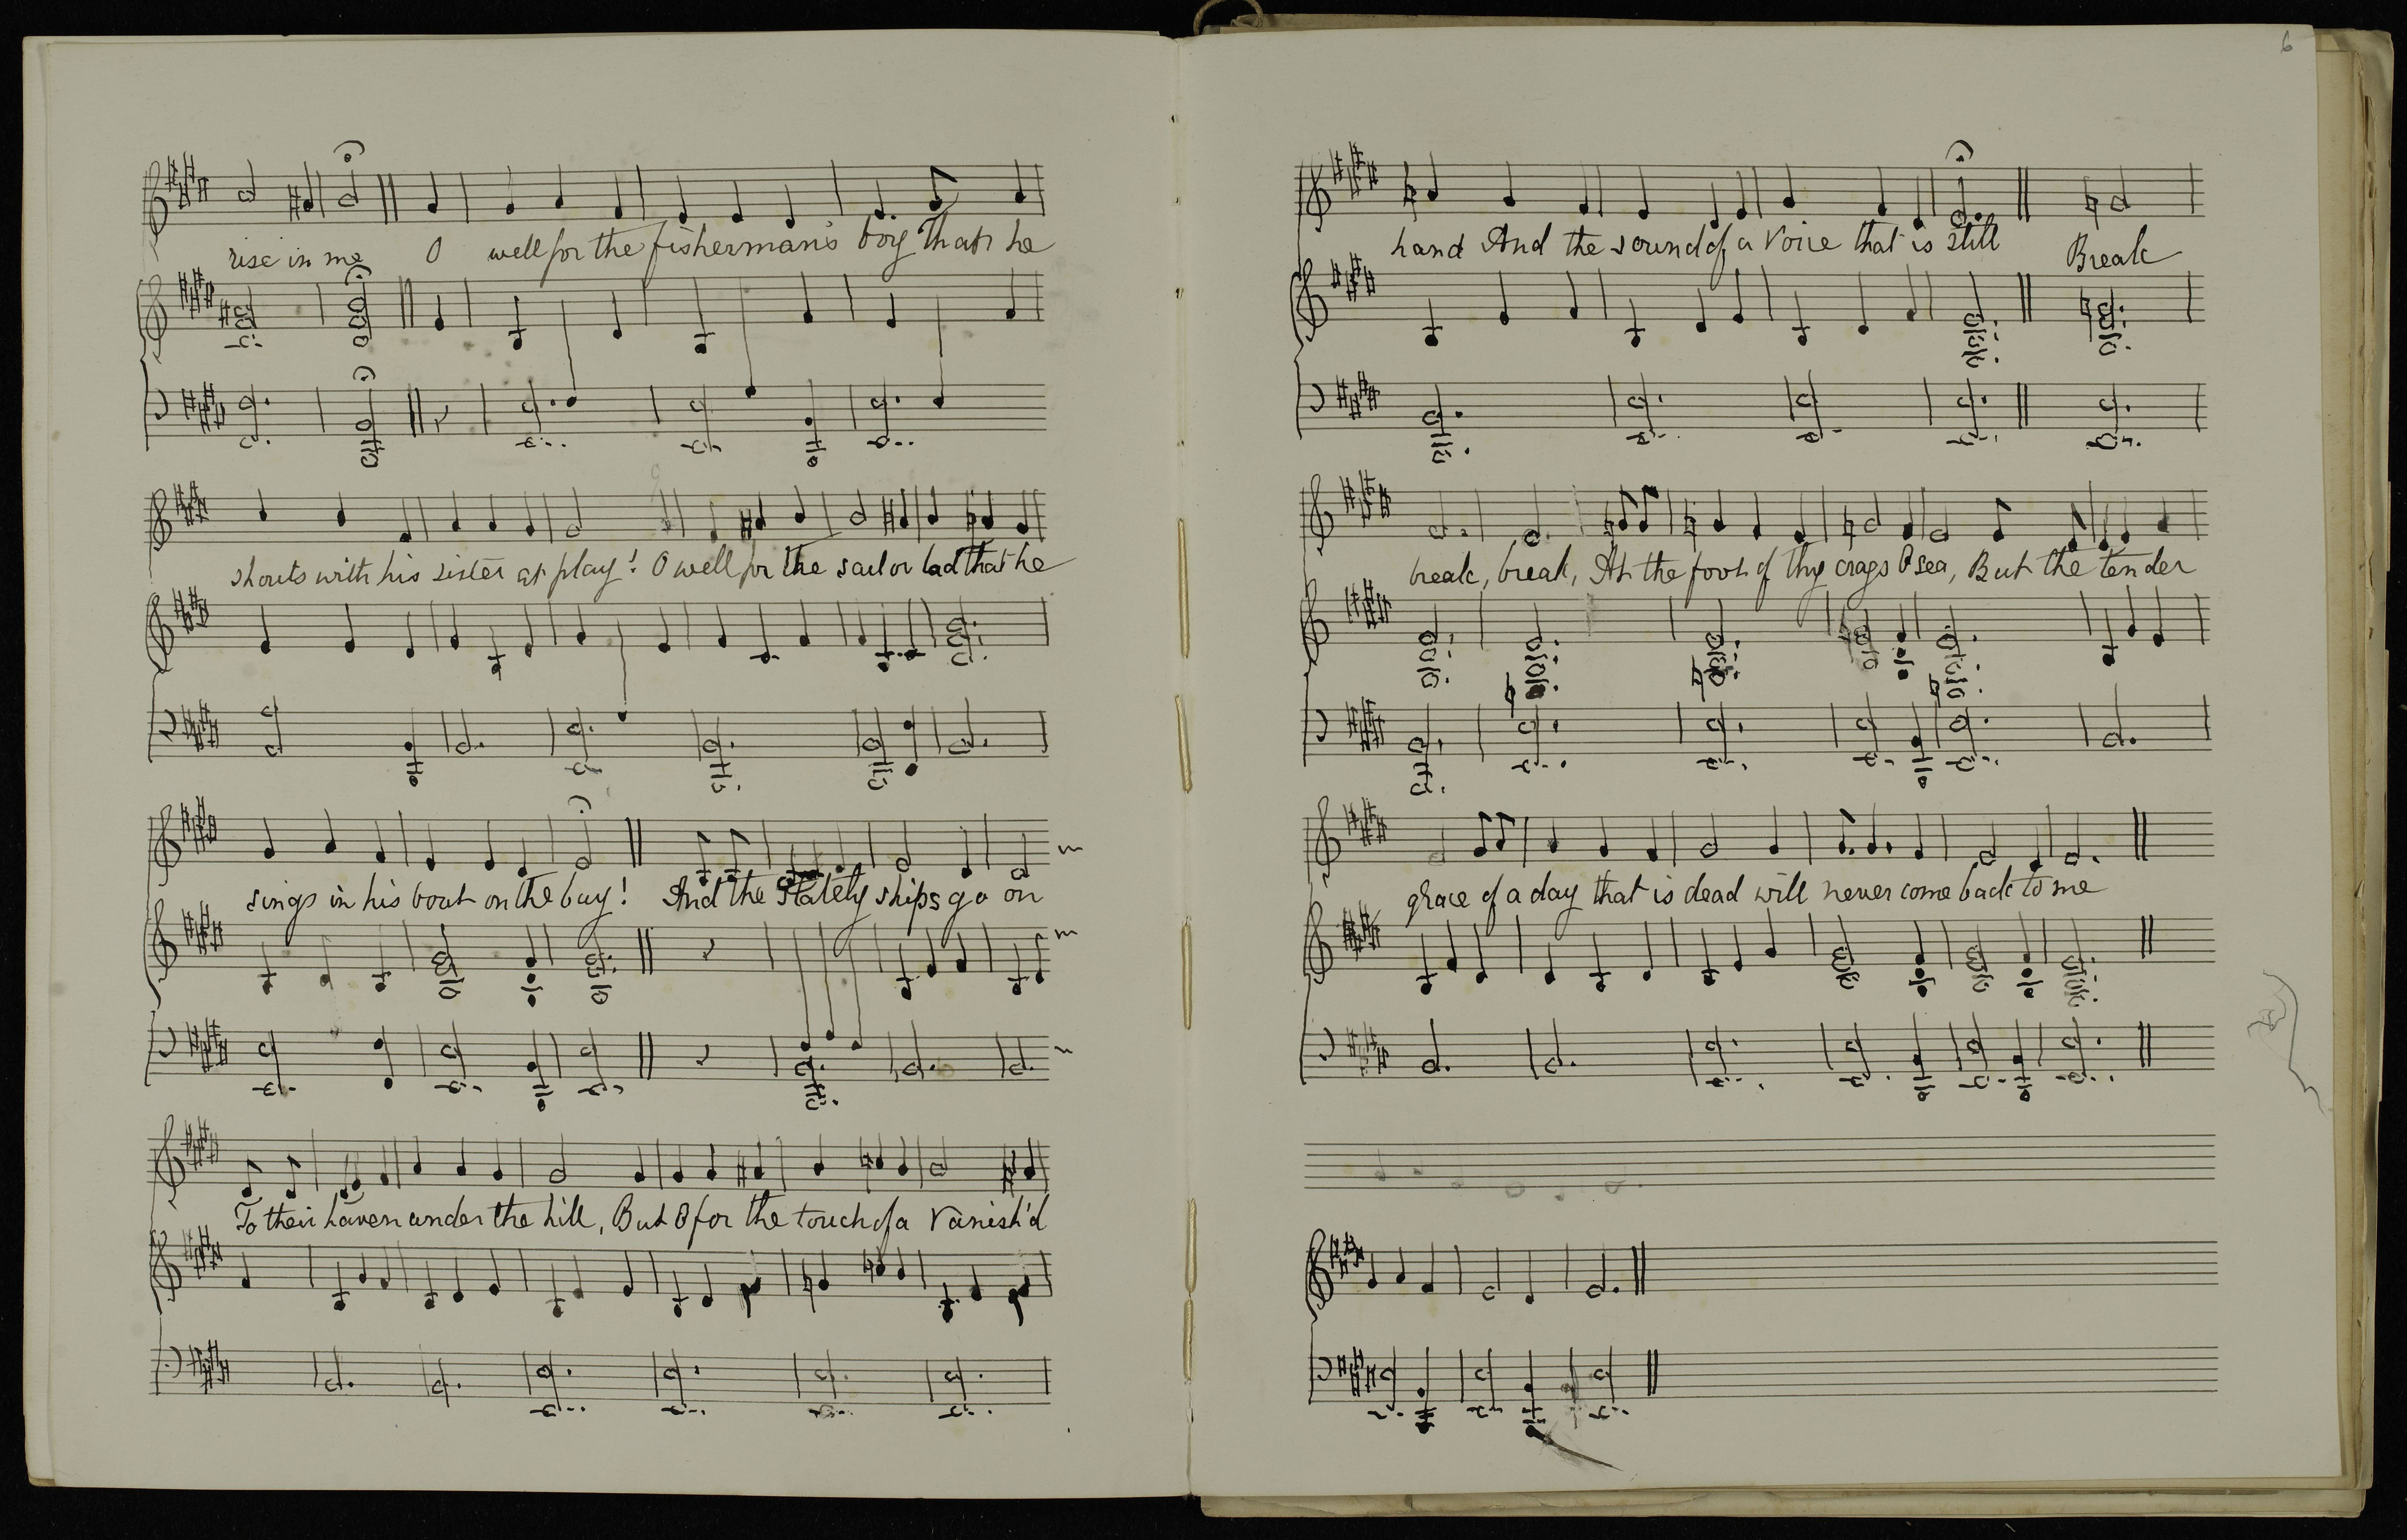 rise in me O well for the fisherman's boy that he
shouts with his sister at play! O well for the sailor lad that he
sings in his boat on the bay! And the stately ships go on
To their haven under the hill, But O for the touch of a vanish'd
6
hand And the sound of a voice that is still Break
break, break, At the foot of thy crags O sea, But the tender
grace of a day that is dead will never come back to me